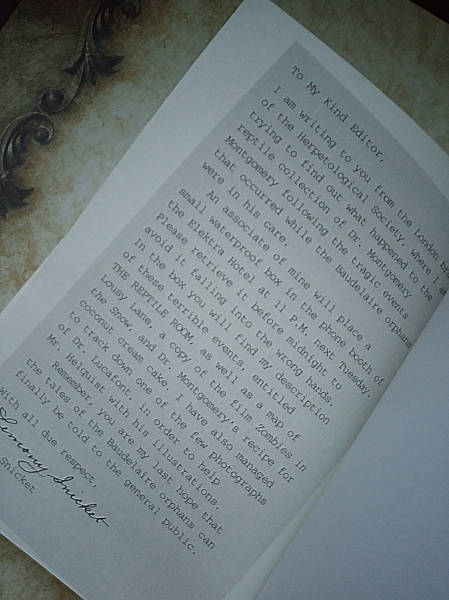 To My Kind Editor,
I am writing to you from the London
of the Herpetological Society, where I
trying to find out what happened to the
reptile collection of Dr. Montgomery
Montgomery following the tragic events
that occurred while the Baudelaire orphans
were in his care.
An associate of mine will place a
small waterproof box in the phone booth of
the Elektra Hotel at 11 P.M. next Tuesday.
Please retrieve it before midnight to
avoid it falling into the wrong hands.
In the box you will find my description
of these terrible events, entitled
THE REPTILE ROOM, as well as a map of
Lousy Lane, a copy of the film Zombies in
the Snow, and Dr. Montgomery's recipe for
coconut cream cake. I have also managed
to track down one of the few photographs
of Dr. Lucafont, in order to help
Mr. Helquist with his illustrations.
Remember, you are my last hope that
the tales of the Baudelaire orphans can
finally be told to the general public.
With all due respect,
Lemony Snicket
Snicket